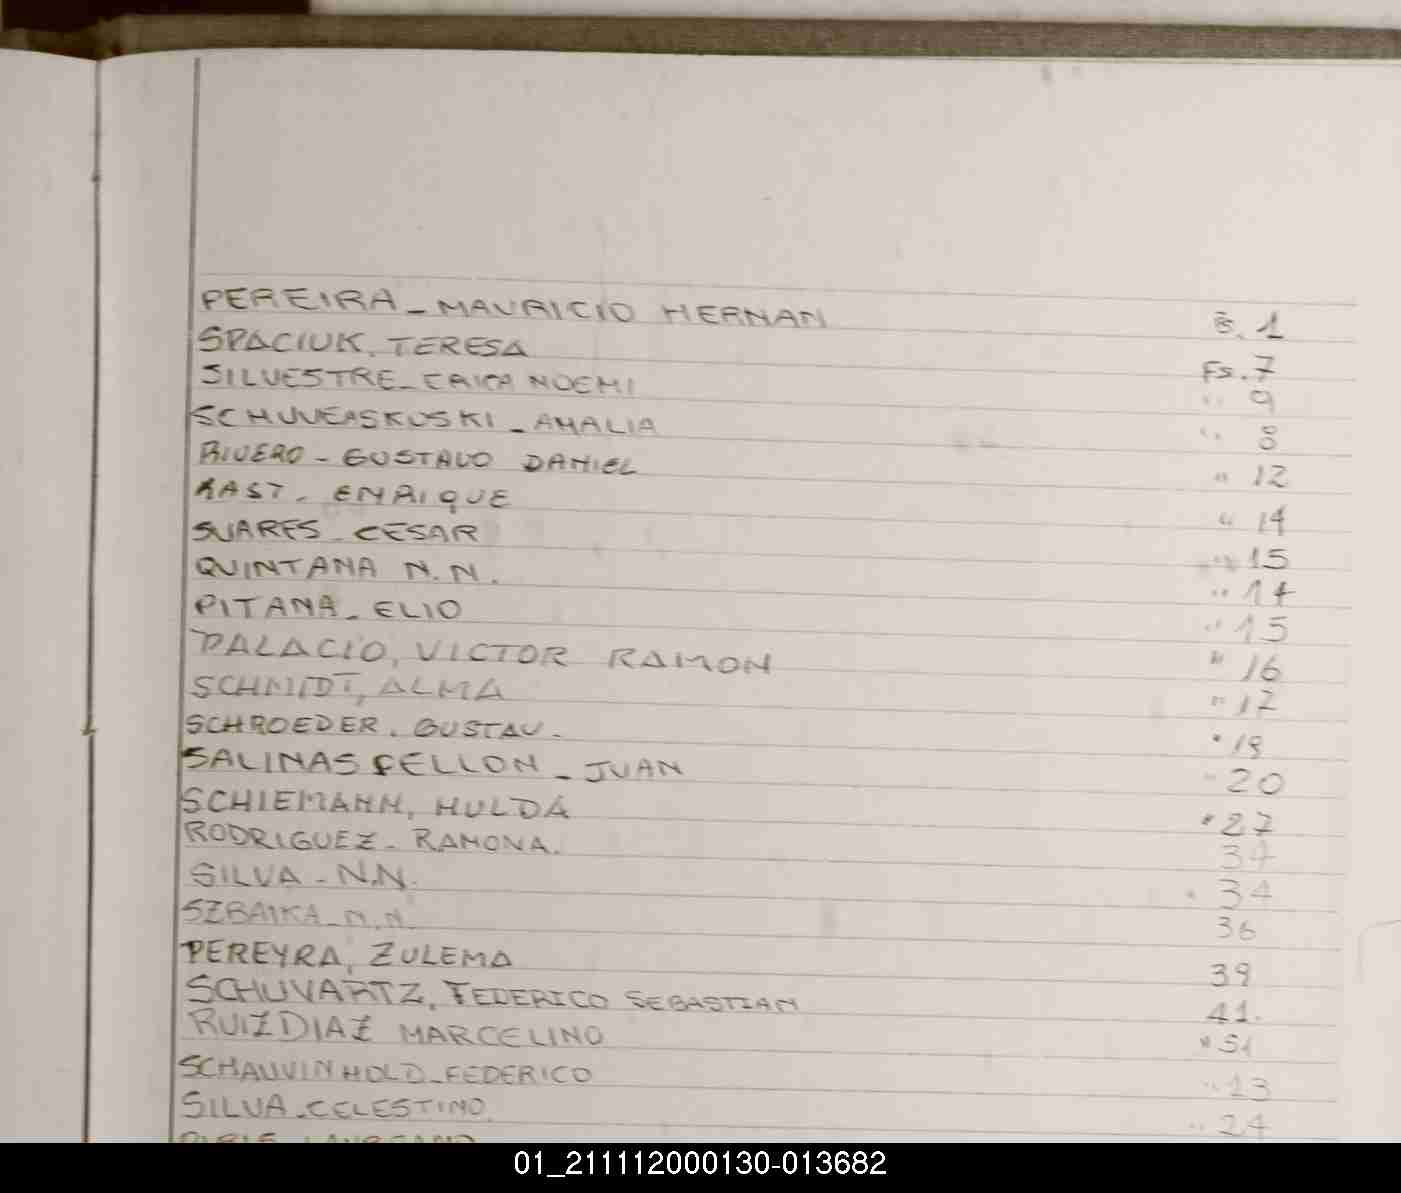 PEREIRA_MAURICIO HERNAN Fs. 1
SPACIUK, TERESA Fs. 7
SILVESTRE_ERICA NOEMI " 9
SCHUVEASKUSKI_AMALIA " 8
RIVERO_GUSTAVO DANIEL " 12
RAST_ENRIQUE " 14
SUARES_CESAR " 15
QUINTANA N.N. " 14
PITANA_ELIO " 15
PALACIO, VICTOR RAMON " 16
SCHMIDT, ALMA " 17
SCHROEDER. GUSTAV. " 19
SALINAS FELLON_JUAN " 20
SCHIEMANN, HULDA " 27
RODRIGUEZ_RAMONA. 34
SILVA_N.N. " 34
SZBAIKA_N.N. 36
PEREYRA, ZULEMA 39
SCHUVARTZ, FEDERICO SEBASTIAN 41.
RUIZ DIAZ MARCELINO " 51
SCHAUVINHOLD_FEDERICO " 13
SILVA_CELESTINO. " 24
01_211112000130-013682